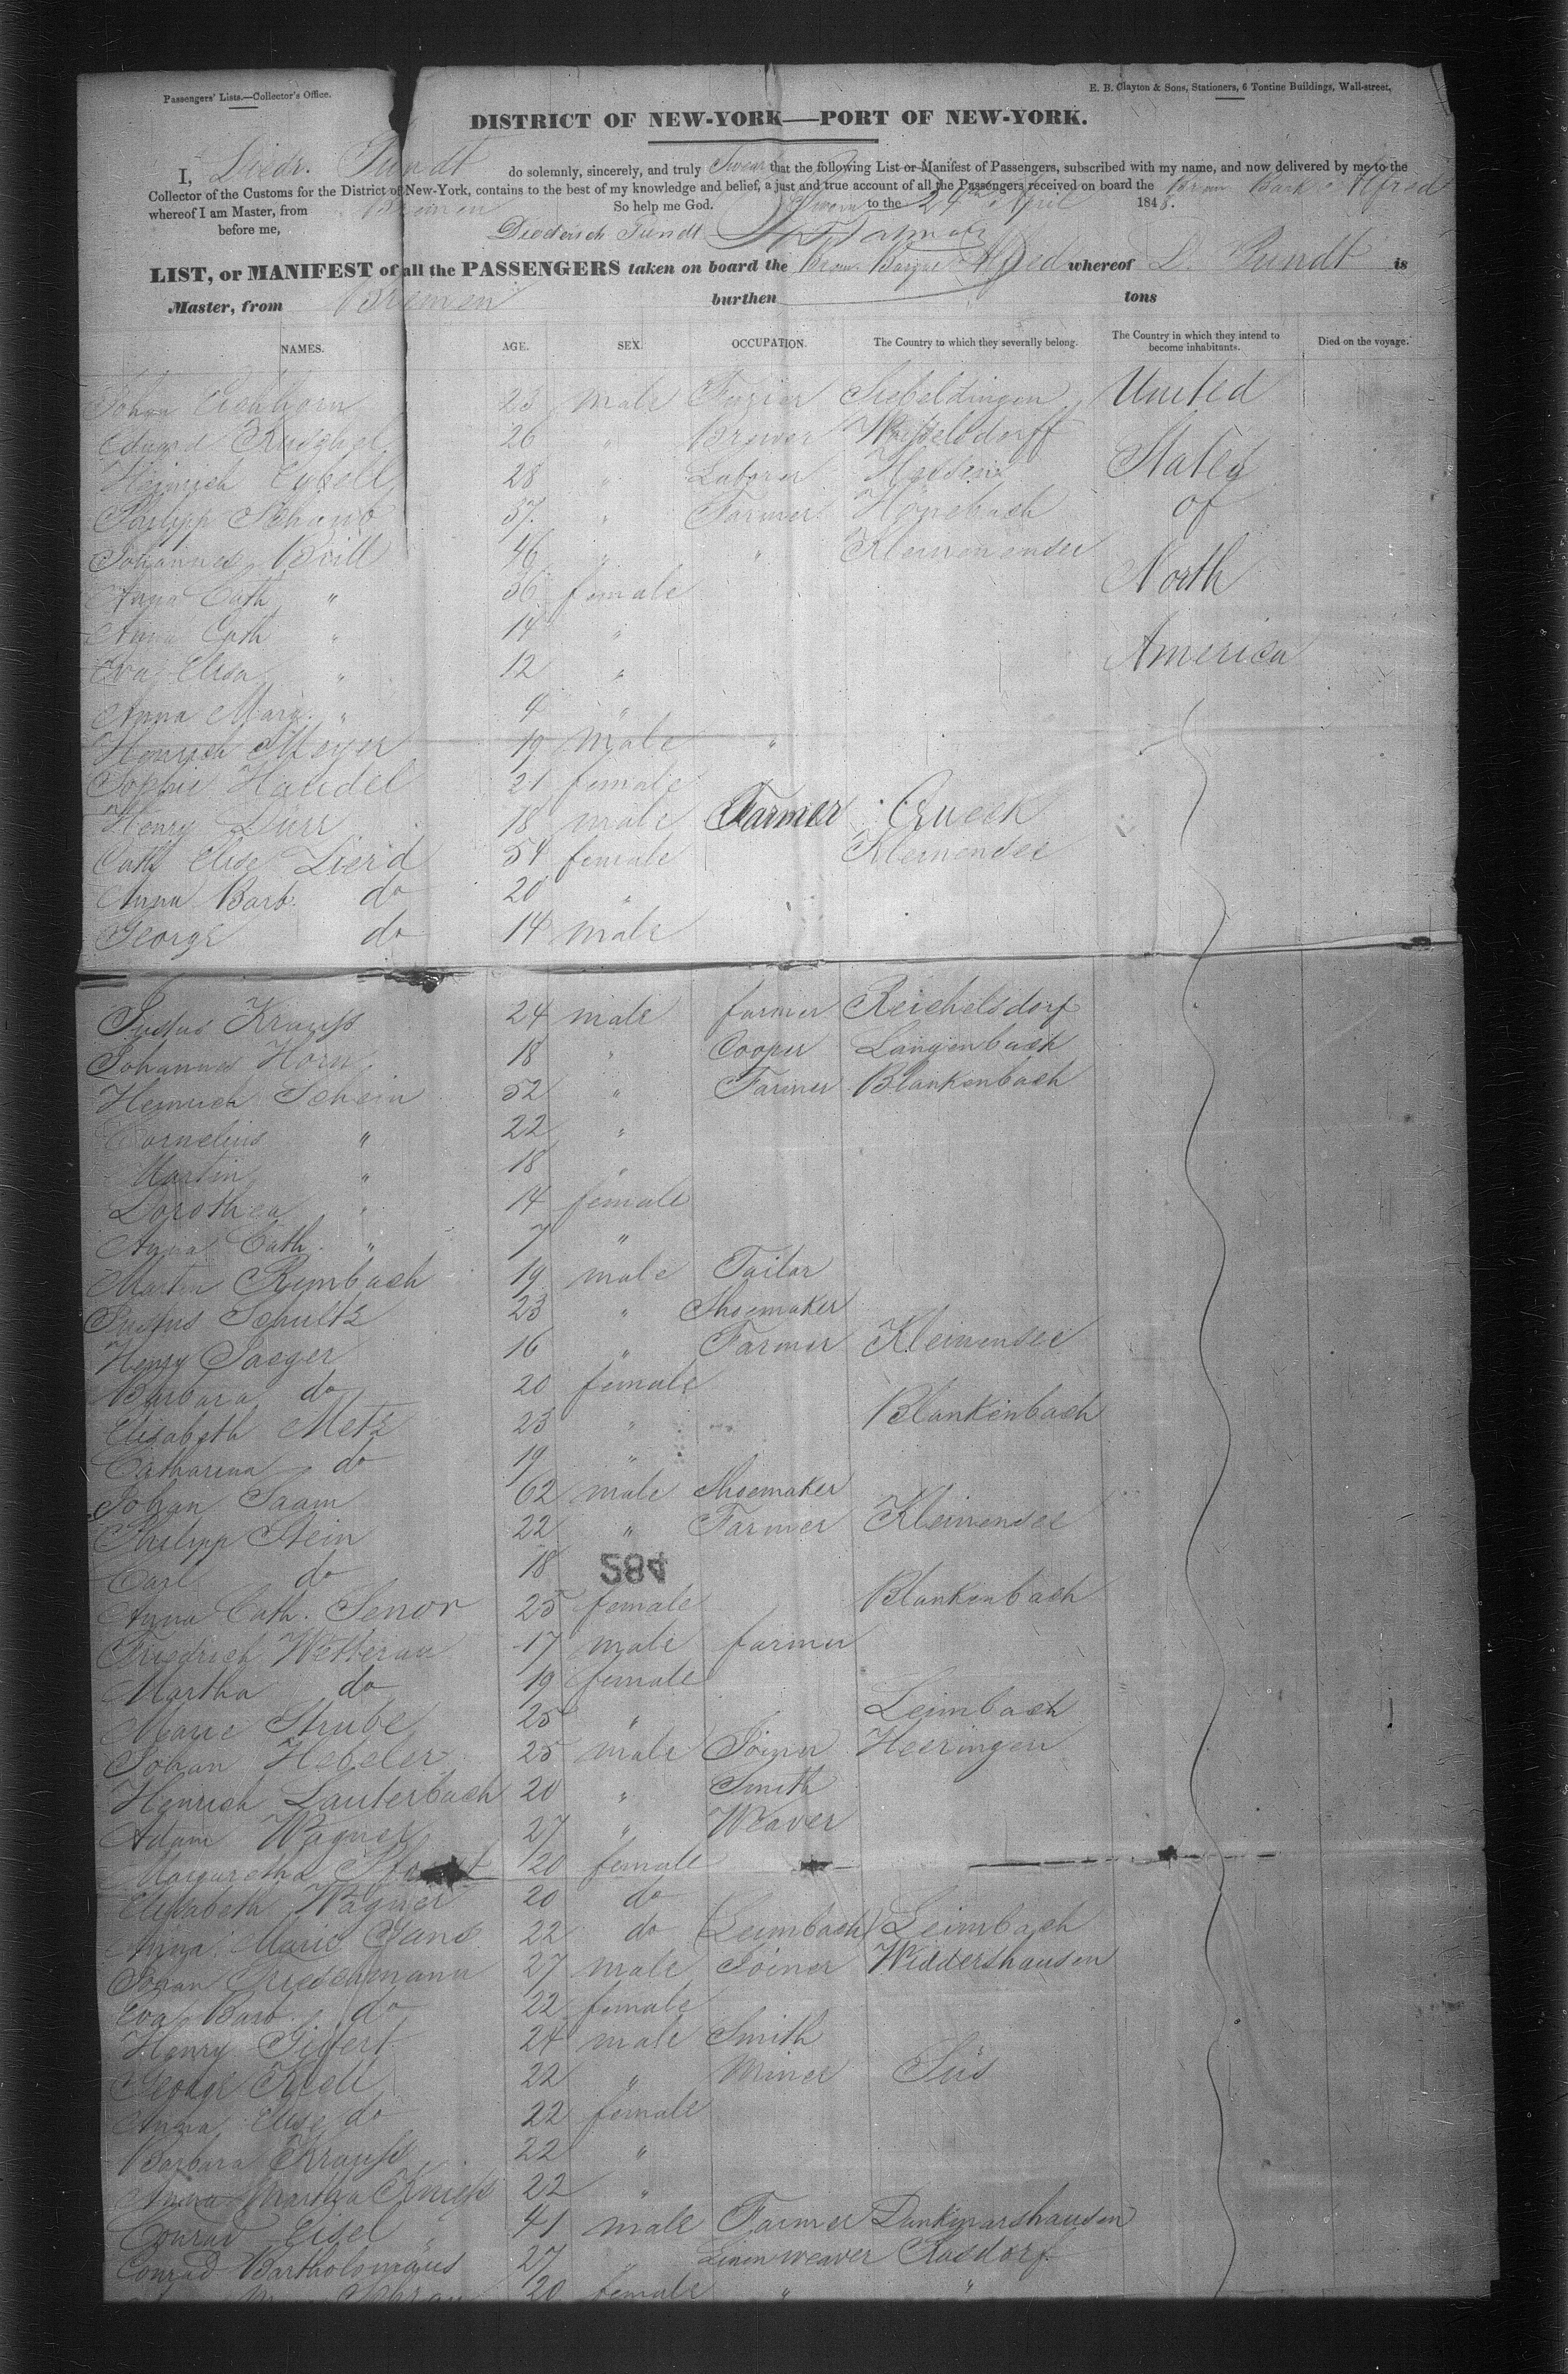 Passengers' Lists.—Collector's Office.
E. B. Clayton & Sons, Stationers, 6 Tontine Buildings, Wall-street,
DISTRICT OF NEW-YORK—PORT OF NEW-YORK.
I, Diedr. Pundt do solemnly, sincerely, and truly Swear that the following List or Manifest of Passengers, subscribed with my name, and now delivered by me to the
Collector of the Customs for the District of New-York, contains to the best of my knowledge and belief, a just and true account of all the Passengers received on board the Brem Bark Alfred
whereof I am Master, from Bremen So help me God. Sworn to the 24th April 1848.
before me, Diederich Pundt
LIST, or MANIFEST of all the PASSENGERS taken on board the Brem. Barque Alfred whereof D. Pundt is
Master, from Bremen burthen tons
NAMES. AGE. SEX. OCCUPATION. The Country to which they severally belong. The Country in which they intend to become inhabitants. Died on the voyage.
Johan 23 male Siebeldingen United
Eduard 26 " Brewer
Heinrich 28 " Laborer States
Philipp Schaub 37. " Farmer Hönebach of
Johannes Brill 46 " " Kleinensee
Anna Cath " 36 female North
Anna Cath " 14 "
Eva Elisa " 12 " America
Anna Mary. " 4 "
Heinrich Meyer 19 male "
Sophie Handel 21 female
Henry Dürr 18 male Farmer Queck
Cath Elise Lierd 54 female Kleinensee
Anna Barb. do 20 "
George do 14 male
Justus Krauss 24 male farmer Reichelsdorf
Johannes Horn 18 " Cooper Langenbach
Heinrich Schein 52 " Farmer Blankenbach
Cornelius " 22 "
Martin " 18 "
Dorothea " 14 female
Anna Cath. " 7 "
Martin Rimbach 19 male Tailor
Justus Schultz 23 " Shoemaker
Henry Jaeger 16 " Farmer Kleinensee
Barbara do 20 female
Elisabeth Metz 23 " Blankenbach
Catharina do 19 "
Johan Saam 62 male Shoemaker
Philipp Stein 22 " Farmer Kleinensee
Carl do 18
584
Anna Cath. Senor 25 female Blankenbach
Friedrich Wetterau 17 male farmer
Martha do 19 female
Marie Strube 25 " Leimbach
Johan Hebeler 25 male Joiner Heeringen
Heinrich Lauterbach 20 " Smith
Adam Wagner 27 " Weaver
Margaretha 20 female
Elisabeth Wagner 20 do
Anna Marie Jans 22 do (Leimbach) Leimbach
Johan 27 male Joiner Widdershausen
Eva Barb. do 22 female
Henry 24 male Smith
George Krell 22 " Miner Süs
Anna Elise do 22 female
Barbara Krauss 22 "
Anna Martha 22 "
Conrad Eisel 41 male Farmer Dankmarshausen
Conrad Bartholomäus 27 " Linen weaver Rasdorf.
20 female " "